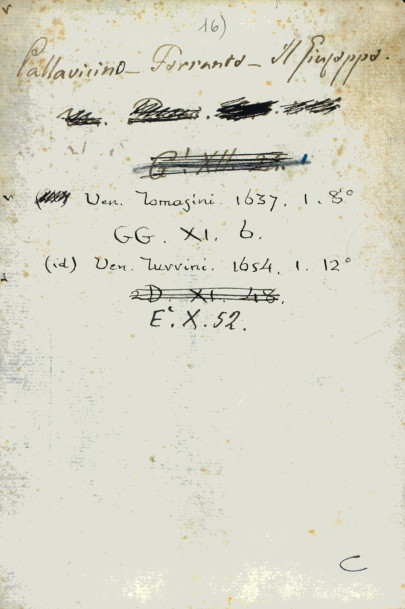 16)
Pallavicino - Ferrante - Il Giuseppe.
Ven. Tomasini. 1637. 1. 8°
GG. XI. 6.
(id) Ven. Turrini. 1654. 1. 12°
2D. XI. 48.
E². X. 52.
C